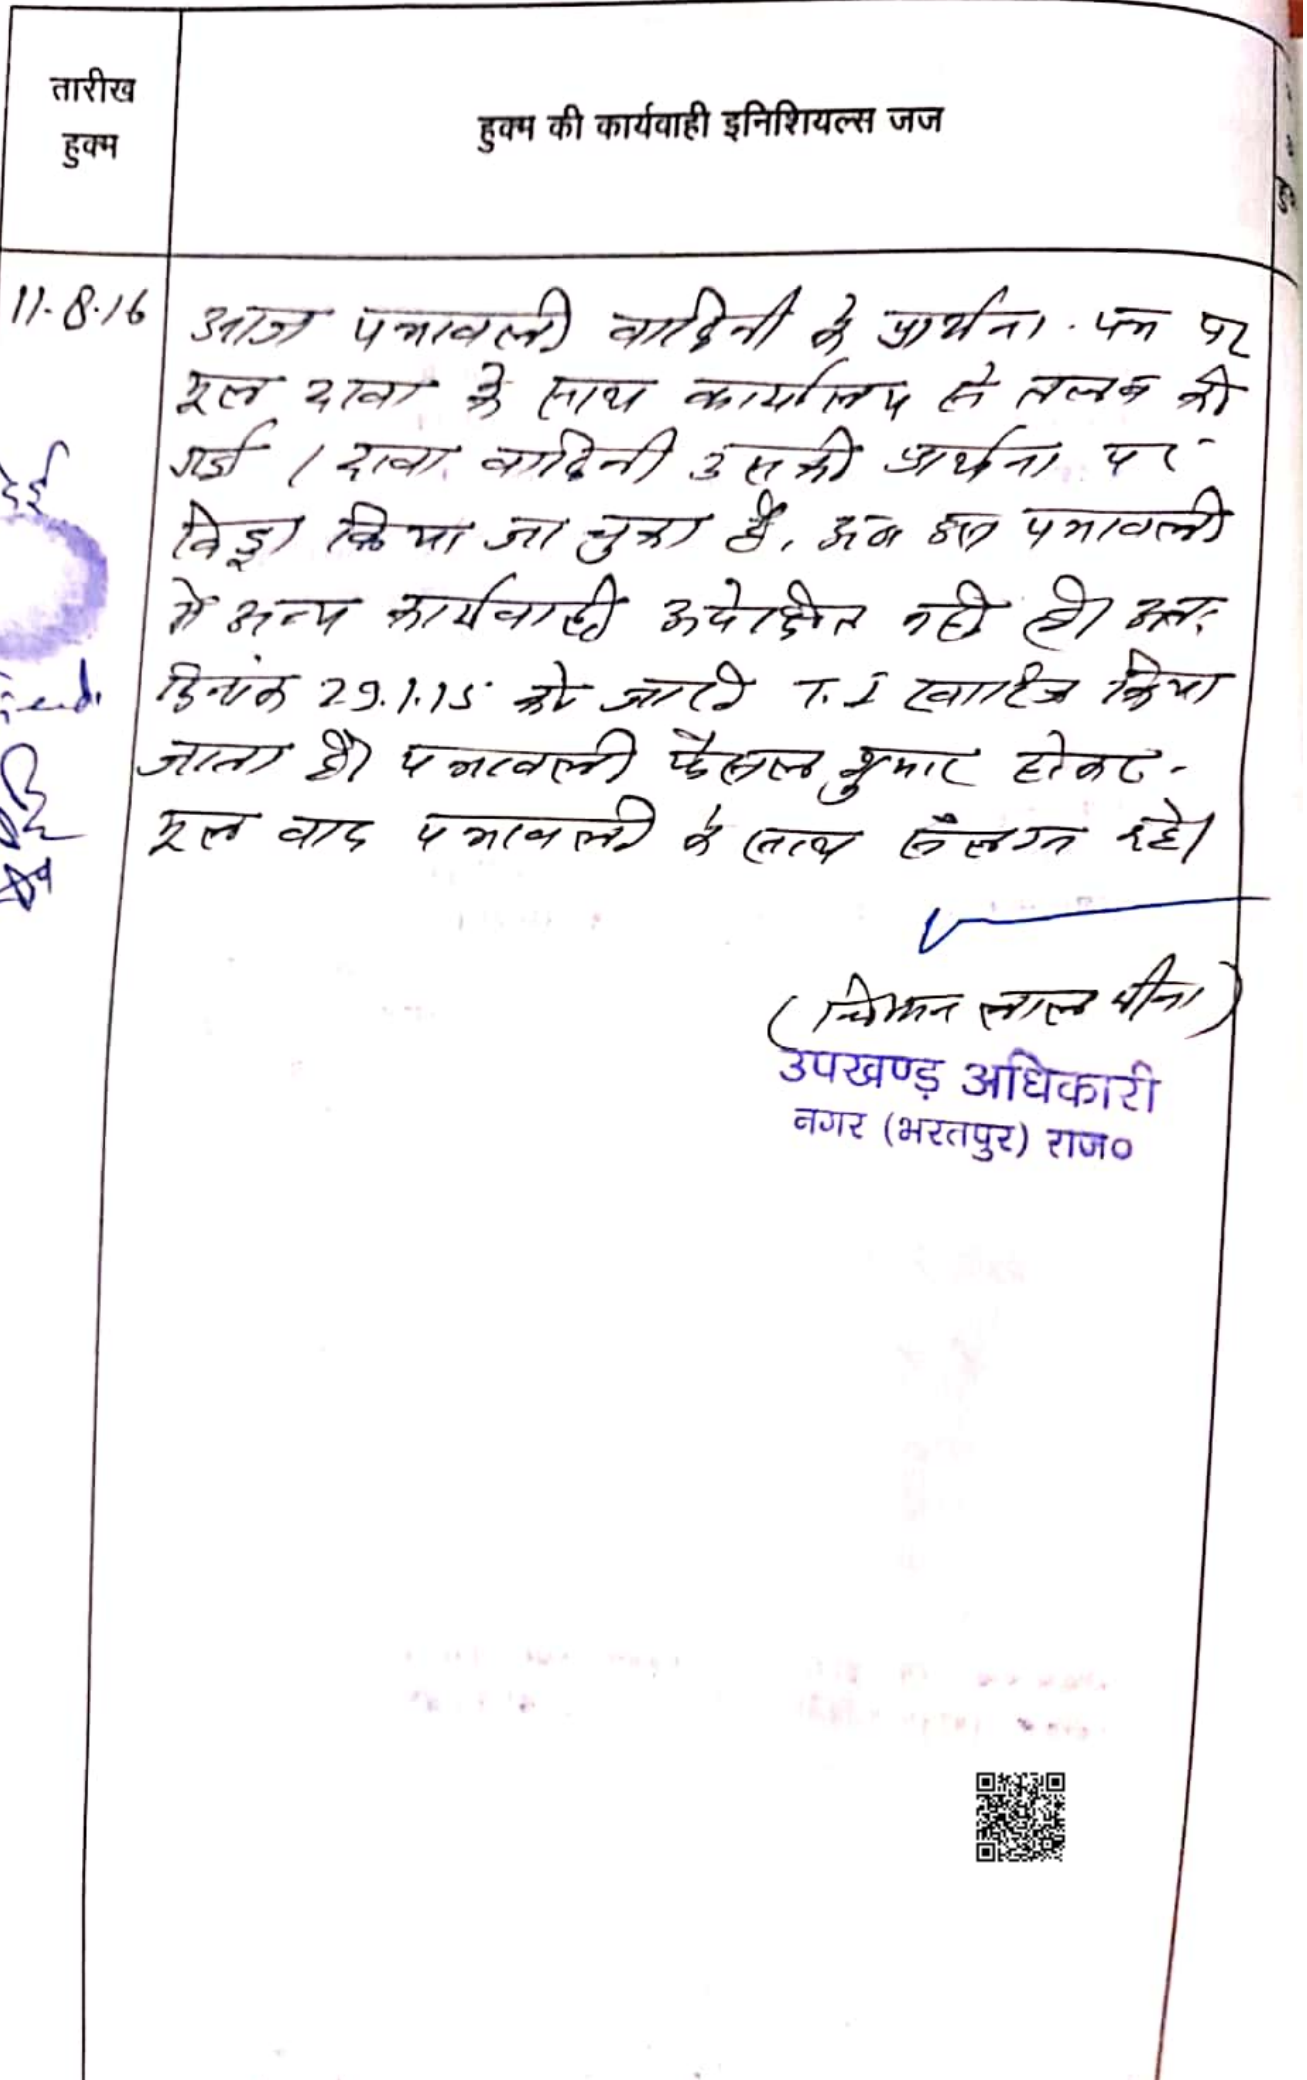 तारीख
हुक्म
हुक्म की कार्यवाही इनिशियल्स जज
11-8-16
आज पत्रावली वादिनी के प्रार्थना-पत्र पर
मूल दावा के साथ कार्यालय से तलब की
गई। दावा वादिनी उसकी प्रार्थना पर
विड्रा किया जा चुका है, अब इस पत्रावली
में अन्य कार्यवाही अपेक्षित नही है। अतः
दिनांक 29.1.15 को जारी T.I खारिज किया
जाता है। पत्रावली फैसल शुमार होकर
मूल वाद पत्रावली के साथ संलग्न रहे।
( लाल मीना)
उपखण्ड़ अधिकारी
नगर (भरतपुर) राज०